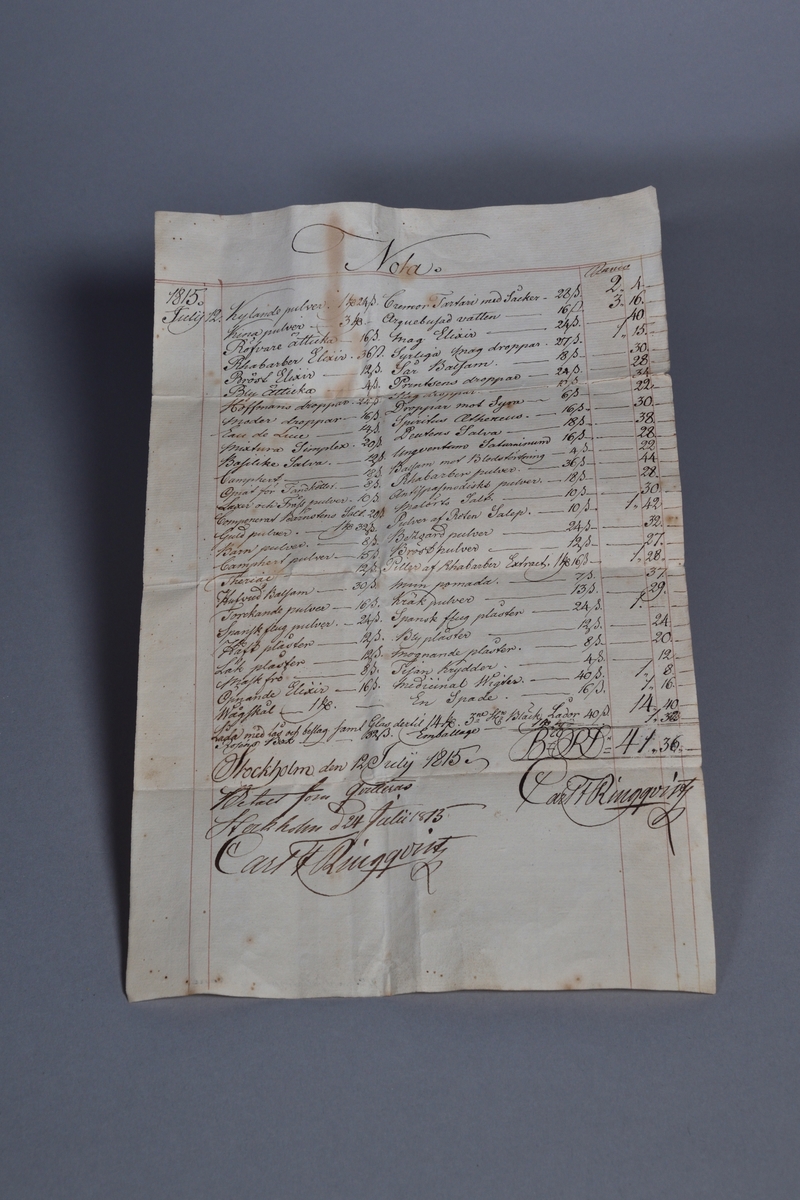 Nota.
Banco
1815.
July 12. Kylande pulver. 1 24ß. Cremor Tartari med Såcker - 28ß. 2. 4.
Kina pulver - 3 Arquebusad vatten - 16ß. 3. 16.
Röfvare Ätticka - 16ß. Mag Elixir - 24ß. 40
Rhabarber Elixir. 36ß. Syrliga Mag droppar. 27ß. 1. 15.
Bröst Elixir - 12ß. Sår Balsam. - 18ß. 30.
Bly Ätticka - 4ß. Printsens droppar - 24ß. 28.
Hoffmans droppar. 24ß. droppar 34
Moder droppar - 16ß. Droppar mot Syra - 6ß. 22.
Eau de Luce - Spiritus Æthereus. - 16ß. 30.
Mixtura Simplex. 20ß. Deutens Salva - 18ß. 38.
Basilike Salva. - 12ß. Unguentum Saturninum 16ß. 28
Camphert - Balsam mot Blodstörtning - 4ß. 22
Opiat för Tandkött - 8ß. Rhabarber pulver. - 36ß. 44
Laxer och Fräss pulver. 10ß. Antispasmediskt pulver. - 18ß. 28.
Componerat Bärnstens Salt. 20ß. Malörts Salt. - 10ß. 30.
Guld pulver. - 1 32ß. Pulver af Roten Salep. - 10ß. 1. 42.
Barn pulver. - 8ß. Betzoard pulver - 24ß. 32.
Camphert pulver - 15ß. Bröst pulver - 12ß. 27.
Theriac - 12ß. Piller af Rhabarber Extract. 1 16ß. 1. 28.
Hufvud Balsam. - 30ß. Mun pomada. - 7ß. 37.
Torrkande pulver - 16ß. Kräk pulver - 13ß. 29.
Spansk flug pulver. - 24ß. Spansk flug plåster - 24ß. 1.
Häft plåster - 12ß. Bly plåster - 12ß. 24
Läk plåster - 12ß. Mognande plåster. - 8ß. 20.
Mask frö - 8ß. Tisan Krydder. - 4ß. 12
Öpnande Elixir - 16ß. Medicinal Wigter. - 40ß. 1. 8.
Wågskål - 1 En Spade. - 16ß. 1. 16
Låda med lås och beslag samt Glas dertil 14 3ne Bläck Lådor 40ß. 14. 40
32ß. Emballage 1.
B:co RD: = 41. 36.
Stockholm den 12 July 1815.
Carl F Ringqvist
Betalt som qvitteras
Stockholm d 24 Julii 1815.
Carl F Ringqvist